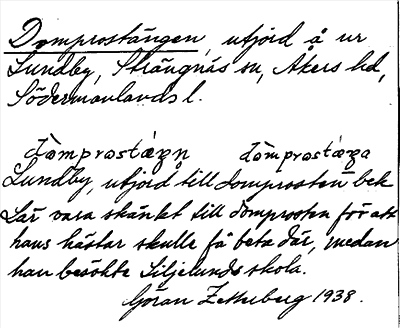 Domprostängen, utjord å ur
Lundby, Strängnäs sn, Åkers hd,
Södermanlands l.
dòmprostæ̀ŋņ dòmprostæ̀ŋa
Lundby, utjord till domprosten bek
Lär vara skänkt till domprosten för att
hans hästar skulle få beta där, medan
han besökte Siljelunds skola.
Göran Zetterberg 1938.